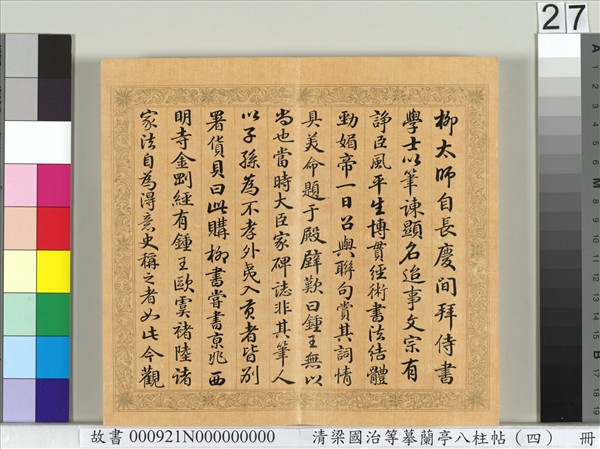 柳太師自長慶間拜侍書
學士以筆諫顯名迨事文宗有
諍臣風平生博貫經術書法結體
勁媚帝一日召與聯句賞其詞情
具美命題于殿壁歎曰鍾王無以
尚也當時大臣家碑誌非其筆人
以子孫為不孝外夷入貢者皆別
署貨貝曰此購柳書嘗書京兆西
明寺金剛經有鍾王歐虞褚陸諸
家法自為得意史稱之者如此今觀
27
故書 000921N000000000 清梁國治等摹蘭亭八柱帖（四） 冊